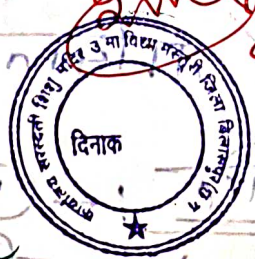 कार्यालय सरस्वती शिशु मंदिर उ मा विद्या मस्तूरी जिला बिलासपुर (छ ग
दिनाक